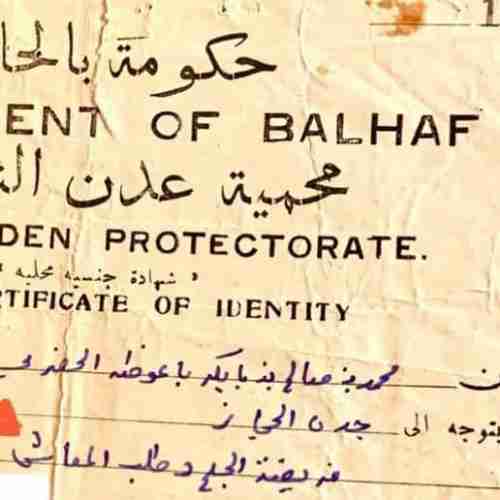 حكومة بالحا
ENT OF BALHAF
محمية عدن ال
DEN PROTECTORATE.
شهادة جنسيه محليه
RTIFICATE OF IDENTITY
محمد بن صالح بن بابكر باعوضه
يتوجه الى جدن الحجاز
فريضة الحج وطلب المعاش